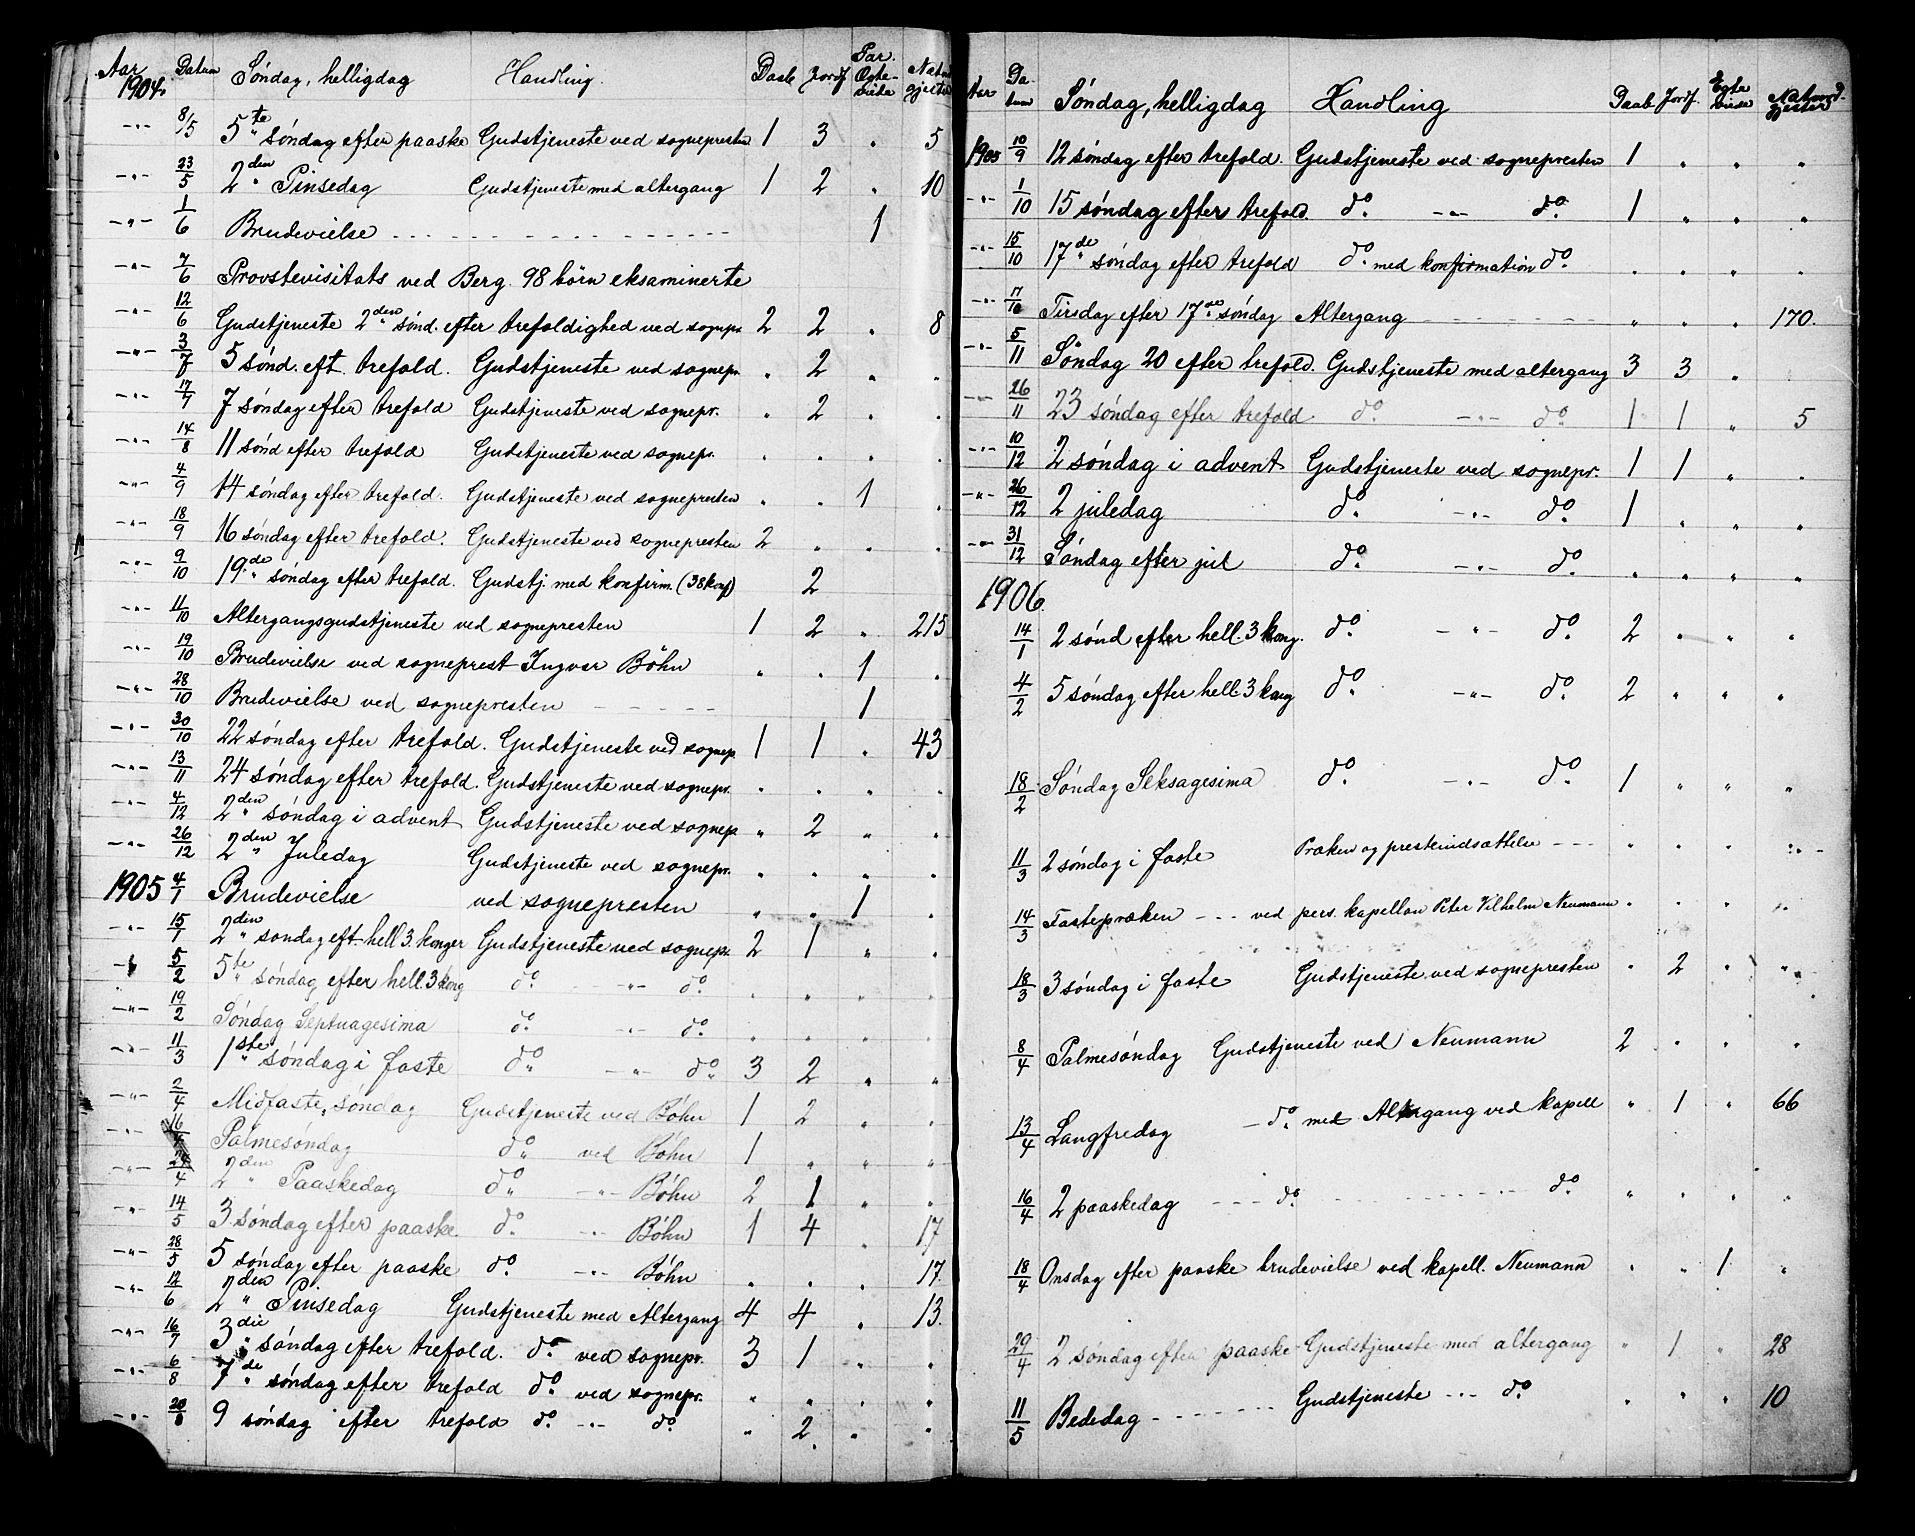 Aar 1904. Datum Søndag, helligdag Handling. Daab Jordf Par. Ægteviede Natverdgjester
-"- 8/5 5te søndag efter paaske Gudstjeneste ved sognepresten 1 3 " 5
-"- 23/5 2den Pinsedag Gudstjeneste med altergang 1 2 " 10
-"- 1/6 Brudevielse - - - - - - - 1
-"- 7/6 Provstevisitats ved Berg. 98 børn eksaminerte
-"- 12/6 Gudstjeneste 2den sønd. efter trefoldighed ved sognepr. 2 2 " 8
-"- 3/7 5 sønd. eft. trefold. Gudstjeneste ved sognepr. " 2 " "
-"- 17/7 7 søndag efter trefold Gudstjeneste ved sognepr. " 2 " "
-"- 14/8 11 sønd efter trefold Gudstjeneste ved sognepr. " " " "
-"- 4/9 14 søndag efter trefold. Gudstjeneste ved sognepresten " " 1 "
-"- 18/9 16 søndag efter trefold. Gudstjeneste ved sognepresten 2 " " "
-"- 9/10 19de søndag efter trefold. Gudstj. med konfirm. (38 konf) 2
-"- 11/10 Altergangsgudstjeneste ved sognepresten 1 2 " 215
-"- 19/10 Brudevielse ved sogneprest Ingvar Bøhn " " 1 "
-"- 28/10 Brudevielse ved sognepresten - - - - - 1
-"- 30/10 22 søndag efter trefold. Gudstjeneste ved sognepr. 1 1 " 43
-"- 13/11 24 søndag efter trefold. Gudstjeneste ved sognepr. " " " "
-"- 4/12 2den søndag i advent Gudstjeneste ved sognepr " 2 " "
-"- 26/12 2den Juledag Gudstjeneste ved sognepr. " " " "
1905 4/1 Brudevielse ved sognepresten " " 1 "
-"- 15/1 2den søndag eft hell 3. konger Gudstjeneste ved sognepr. 2 1 " "
-"- 5/2 5te søndag efter hell. 3 kong do -"- do " " " "
-"- 19/2 Søndag Septuagesima do -"- do " " " "
-"- 11/3 1ste søndag i faste do -"- do 3 2 " "
-"- 2/4 Midfaste, søndag Gudstjeneste ved Bøhn 1 2 " "
-"- 16/4 Palmesøndag do ved Bøhn 1 " " "
-"- 24/4 2den Paaskedag do -"- Bøhn 2 1 " "
-"- 14/5 3 søndag efter paaske do -"- Bøhn 1 4 " 17
-"- 28/5 5 søndag efter paaske do -"- Bøhn " " " 17
-"- 12/6 2den Pinsedag Gudstjeneste med Altergang 4 4 " 13.
-"- 16/7 3die søndag efter trefold. do ved sognepr. 3 1 " "
-"- 6/8 7de søndag efter trefold do ved sognepr. " " " "
-"- 20/8 9 søndag efter trefold do -"- do " 2 " "
Aar Datum Søndag, helligdag Handling Daab Jordf. Egteviede Natverdgjester
1905 10/9 12 søndag efter trefold. Gudstjeneste ved sognepresten 1 " " "
-"- 1/10 15 søndag efter trefold. do -"- do 1 " " "
-"- 15/10 17de søndag efter trefold do med konfirmation do " " " "
-"- 17/10 Tirsdag efter 17de søndag Altergang - - - - - " " " 170.
-"- 5/11 Søndag 20 efter trefold. Gudstjeneste med altergang 3 3 "
-"- 26/11 23 søndag efter trefold do -"- do 1 1 " 5
-"- 10/12 2 søndag i advent Gudstjeneste ved sognepr. 1 1 " "
-"- 26/12 2 juledag do -"- do 1 " " "
-"- 31/12 Søndag efter jul do -"- do " " " "
1906.
14/1 2 sønd efter hell. 3 kong. do -"- do 2 " " "
4/2 5 søndag efter hell. 3 kong do -"- do 2 " " "
18/2 Søndag Seksagesima do -"- do 1 " " "
11/3 2 søndag i faste Præken og presteindsættelse - - - " " " "
14/3 Fastepræken - - - ved pers. kapellan Peter Vilhelm Neumann " " " "
18/3 3 søndag i faste Gudstjeneste ved sognepresten " 2 " "
8/4 Palmesøndag Gudstjeneste ved Neumann 2 " " "
13/4 Langfredag - do med Altergang ved kapell " 1 " 66
16/4 2 paaskedag - - - do - - - - - do " " " "
18/4 Onsdag efter paaske brudevielse ved kapell. Neumann " " 1 "
29/4 2 søndag efter paaske Gudstjeneste med altergang " 1 " 28
11/5 Bededag - - - - - Gudstjeneste - - - do " " " 10